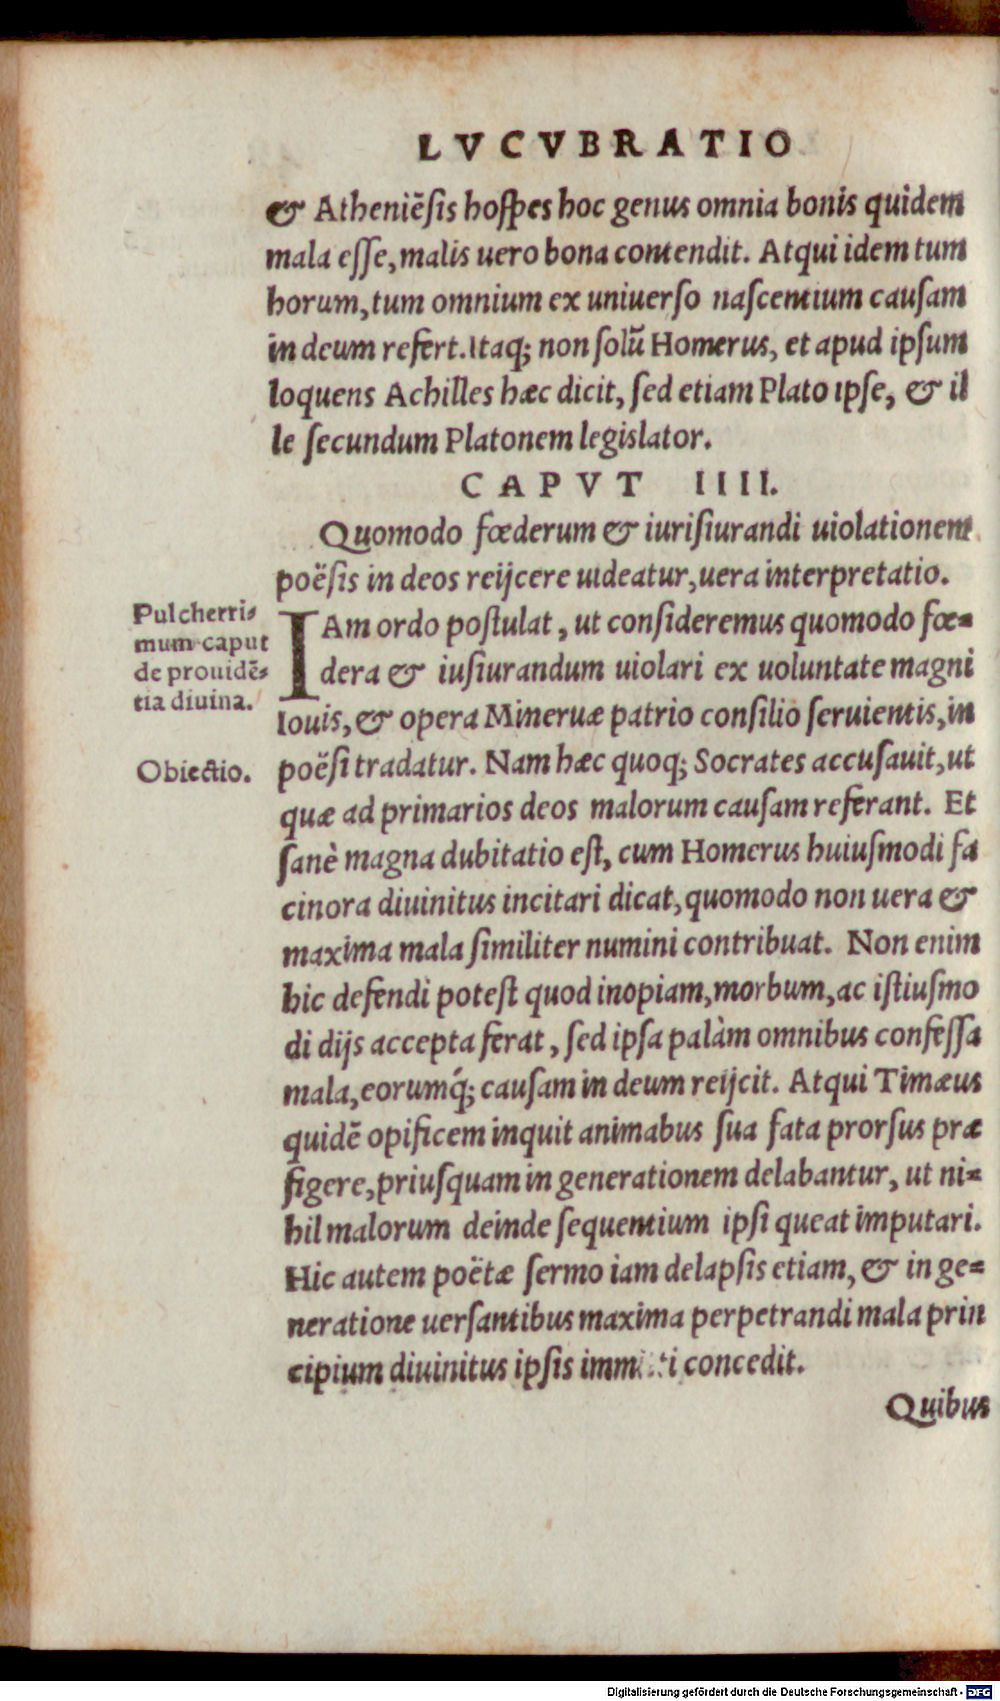 LVCVBRATIO
& Atheniẽsis hospes hoc genus omnia bonis quidem
mala esse, malis uero bona contendit. Atqui idem tum
horum, tum omnium ex uniuerso nascentium causam
in deum refert. Itaq; non solũ Homerus, et apud ipsum
loquens Achilles hæc dicit, sed etiam Plato ipse, & il
le secundum Platonem legislator.
CAPVT IIII.
Quomodo fœderum & iurisiurandi uiolationem
poësis in deos reijcere uideatur, uera interpretatio.
Pulcherri-
mum caput
de prouidẽ-
tia diuina.
IAm ordo postulat, ut consideremus quomodo fœ-
dera & iusiurandum uiolari ex uoluntate magni
Iouis, & opera Mineruæ patrio consilio seruientis, in
Obiectio.
poësi tradatur. Nam hæc quoq; Socrates accusauit, ut
quæ ad primarios deos malorum causam referant. Et
sanè magna dubitatio est, cum Homerus huiusmodi fa
cinora diuinitus incitari dicat, quomodo non uera &
maxima mala similiter numini contribuat. Non enim
hic defendi potest quod inopiam, morbum, ac istiusmo
di dijs accepta ferat, sed ipsa palàm omnibus confessa
mala, eorumq́; causam in deum reijcit. Atqui Timæus
quidẽ opificem inquit animabus sua fata prorsus præ
figere, priusquam in generationem delabantur, ut ni-
hil malorum deinde sequentium ipsi queat imputari.
Hic autem poëtæ sermo iam delapsis etiam, & in ge-
neratione uersantibus maxima perpetrandi mala prin
cipium diuinitus ipsis concedit.
Quibus
Digitalisierung gefördert durch die Deutsche Forschungsgemeinschaft - DFG